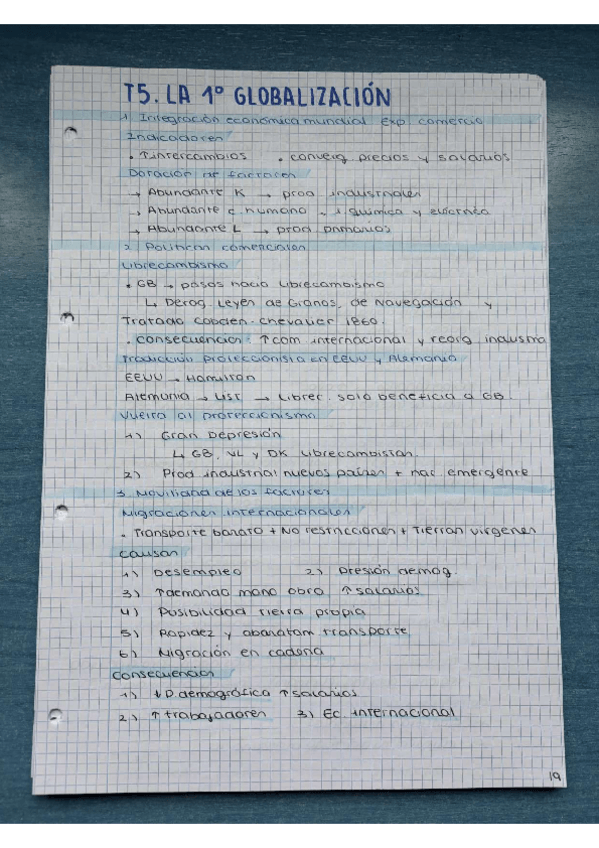 T5. LA 1º GLOBALIZACIÓN
1. Integración económica mundial. Exp. comercio
Indicadores
. ↑intercambios . converg. precios y salarios
Dotación de factores
→ Abundante K → prod. industriales
→ Abundante c. humano → i. química y eléctrica
→ Abundante L → prod. primarios
2. Políticas comerciales
Librecambismo
. GB → pasos hacia librecambismo
↳ Derog. Leyes de Granos, de Navegación y
Tratado Cobden-Chevalier 1860.
. Consecuencias: ↑com. internacional y reorg. industria
Tradición proteccionista en EEUU y Alemania
EEUU → Hamilton
Alemania → List → Librec. solo beneficia a GB.
Vuelta al proteccionismo
1) Gran Depresión
↳ GB, NL y DK librecambistas.
2) Prod. industrial nuevos países + nac. emergente
3. Movilidad de los factores
Migraciones internacionales
. Transporte barato + No restricciones + Tierras vírgenes
Causas
1) Desempleo 2) Presión demog.
3) ↑demanda mano obra ↑salarios
4) Posibilidad tierra propia
5) Rapidez y abaratam. transporte
6) Migración en cadena
Consecuencias
1) ↓P. demográfica ↑salarios
2) ↑trabajadores 3) Ec. internacional
19